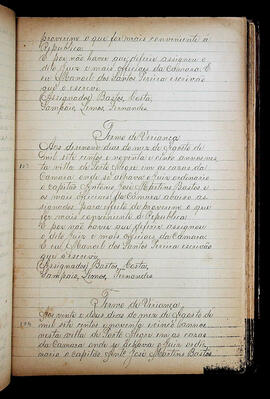 proverem o que for mais conveniente a
Republica.
E por não haver que deferir assignou o
dito Juiz e mais Officiaes da Camara. E
eu Manoel dos Santos Pereira escrivão
que o escrevi.
(Assignados) Bastos, Costa,
Sampaio, Lemos, Fernandes.
Termo de Veriança
Aos dezenove dias do mez de Agosto de
mil sete centos e noventa e cinco annos nes-
ta villa de Porto Alegre em as casas da
Camara onde se achava o Juiz ordinario
o capitão Antonio José Martins Bastos e
os mais officiaes da Camara abaixo as-
signados para effeito de proverem o que
for mais conveniente á Republica.
E por não haver que deferir assignou
o dito Juiz e mais officiaes da Camara.
E eu Manoel dos Santos Pereira escrivão
que o escrevi.
(Assignados) Bastos, Costa,
Sampaio, Lemos, Fernandes.
Termo de Veriança
Aos vinte e dous dias do mez de Agosto de
mil sete centos e noventa e cinco annos
nesta villa de Porto Alegre em as casas
da Camara onde se achava o Juiz ordi-
nario o capitão Antº José Martins Bastos